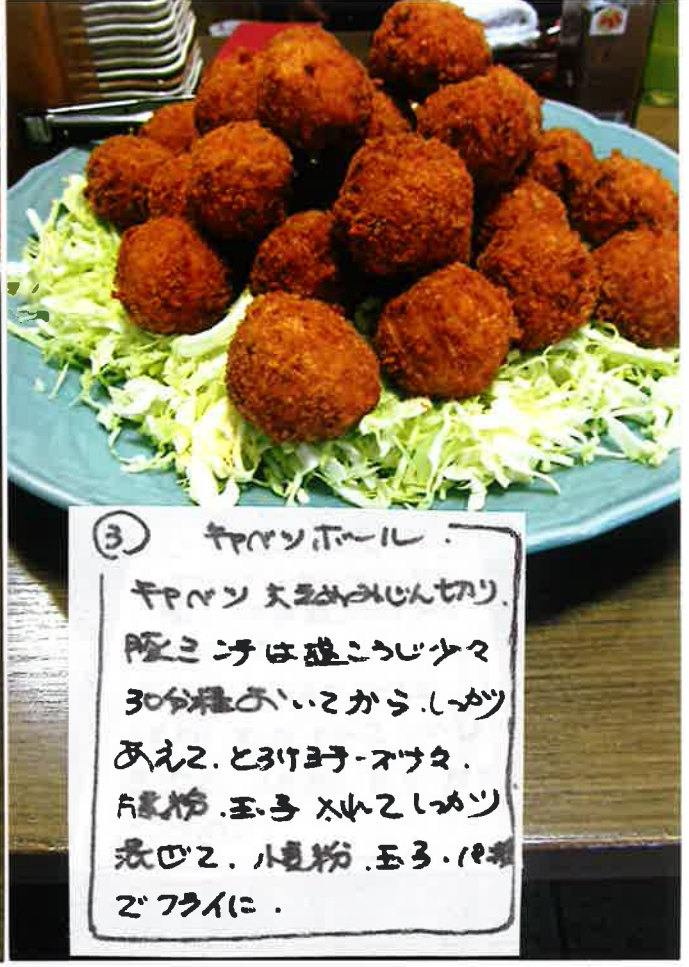 ③ キャベツボール.
キャベツ 大きめみじん切り.
豚ミンチは塩こうじ少々
30分程おいてから.しっかり
あえて.とろけるチーズ少々.
片栗粉.玉子 入れてしっかり
混ぜて.小麦粉.玉子.パン粉
でフライに.